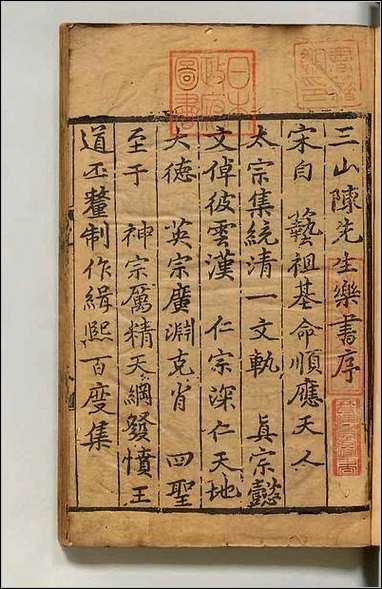 三山陳先生樂書序
宋自 藝祖基命順應天人
太宗集統清一文軌 真宗懿
文倬彼雲漢 仁宗深仁天地
大德 英宗廣淵克肖 四聖
至于 神宗厲精天綱發憤王
道丕釐制作緝熙百度集
日本
政府
圖書